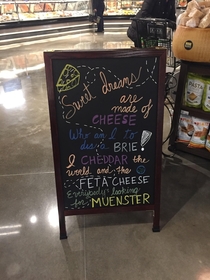 Sweet dreams
are
made of
CHEESE
Who am I to
dis a BRIE!
I CHEDDAR the
world and the
FETA-CHEESE
Everybody's looking
for MUENSTER